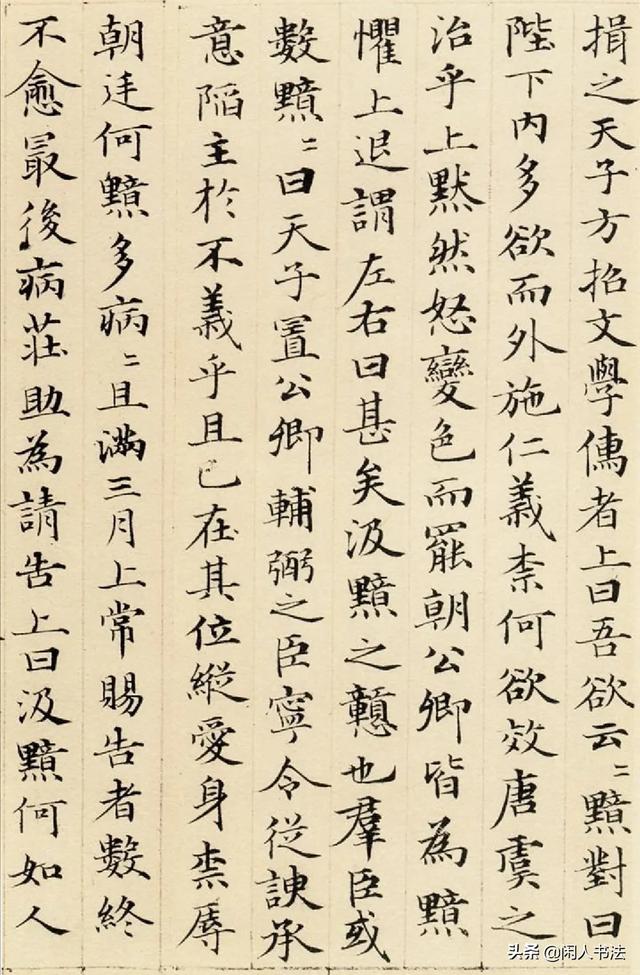 揖之天子方招文學傅者上曰吾欲云〻黯對曰
陛下内多欲而外施仁義柰何欲效唐虞之
治乎上默然怒變色而罷朝公卿皆為黯
懼上退謂左右曰甚矣汲黯之戇也羣臣或
數黯〻曰天子置公卿輔弼之臣寧令從諛承
意陷主於不義乎且已在其位縱愛身柰辱
朝廷何黯多病〻且滿三月上常賜告者數終
不愈最後病莊助為請告上曰汲黯何如人
头条 @闲人书法